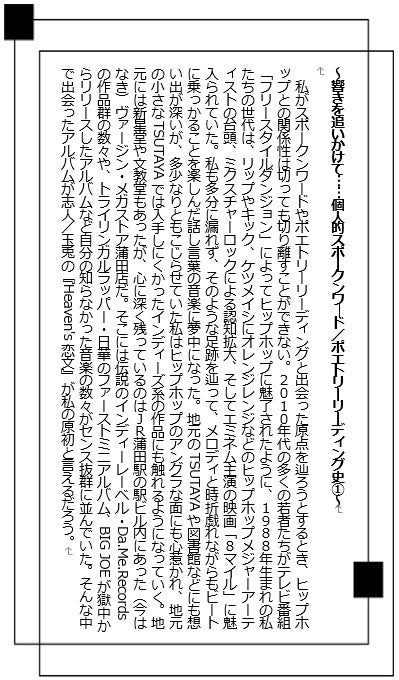 ～響きを追いかけて……個人的スポークンワード／ポエトリーリーディング史①～
私がスポークンワードやポエトリーリーディングと出会った原点を辿ろうとするとき、ヒップホ
ップとの関係性は切っても切り離すことができない。2010年代の多くの若者たちがテレビ番組
「フリースタイルダンジョン」によってヒップホップに魅了されたように、1988年生まれの私
たちの世代は、リップやキック、ケツメイシにオレンジレンジなどのヒップホップメジャーアーテ
ィストの台頭、ミクスチャーロックによる認知拡大、そしてエミネム主演の映画「8マイル」に魅
入られていた。私も多分に漏れず、そのような足跡を辿って、メロディと時折戯れながらもビート
に乗っかることを楽しんだ話し言葉の音楽に夢中になった。地元のTSUTAYAや図書館などにも想
い出が深いが、多少なりともこじらせていた私はヒップホップのアングラな面にも心惹かれ、地元
の小さなTSUTAYAでは入手しにくかったインディーズ系の作品にも触れるようになっていく。地
元には新星堂や文教堂もあったが、心に深く残っているのはJR蒲田駅の駅ビル内にあった（今は
なき）ヴァージン・メガストア蒲田店だ。そこには伝説のインディーレーベル・Da.Me.Records
の作品群の数々や、トライリンガルラッパー・日華のファーストミニアルバム、BIG JOEが獄中か
らリリースしたアルバムなど自分の知らなかった音楽の数々がセンス抜群に並んでいた。そんな中
で出会ったアルバムが志人／玉兎の『Heaven's恋文』が私の原初と言えるだろう。